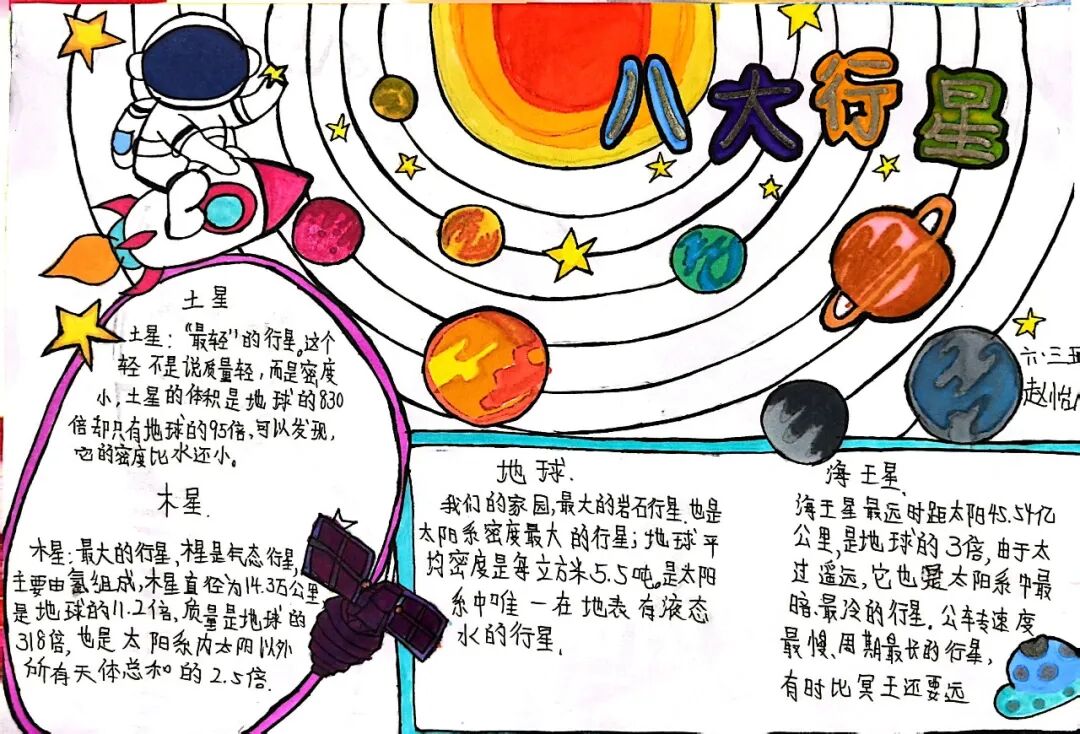 八大行星
六·三
赵怡
土星
土星:"最轻"的行星。这个
轻不是说质量轻,而是密度
小,土星的体积是地球的830
倍却只有地球的95倍,可以发现,
它的密度比水还小。
木星.
木星:最大的行星,木星是气态行星,
主要由氢组成,木星直径为14.3万公里
是地球的11.2倍,质量是地球的
318倍,也是太阳系内太阳以外
所有天体总和的2.5倍.
地球.
我们的家园,最大的岩石行星.也是
太阳系密度最大的行星;地球平
均密度是每立方米5.5吨。是太阳
系中唯一在地表有液态
水的行星.
海王星.
海王星最远时距太阳45.54亿
公里,是地球的3倍,由于太
过遥远,它也是太阳系中最
暗.最冷的行星.公转速度
最慢、周期最长的行星,
有时比冥王还要远